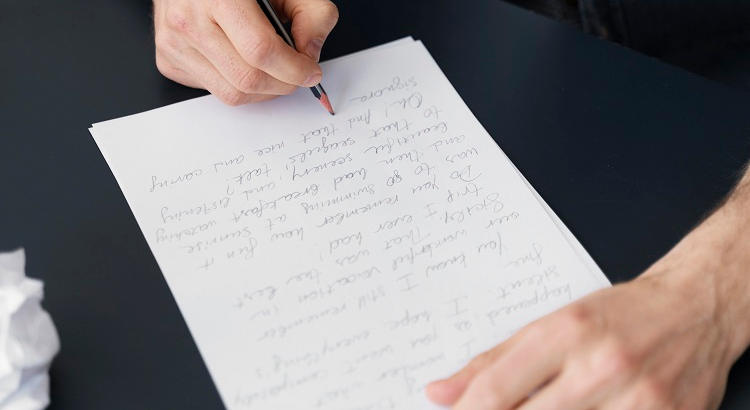 I wonder what
happened as you went completely
silent. I hope everything's
fine.
You know I still remember
our wonderful vacation in
Sicily! That was the best
trip I ever had!
Do you remember how fun it
was to go swimming at sunrise
and then had breakfast watching
beautiful scenery and listening
to that seagulls' talk?
Oh! And that nice and caring
signora